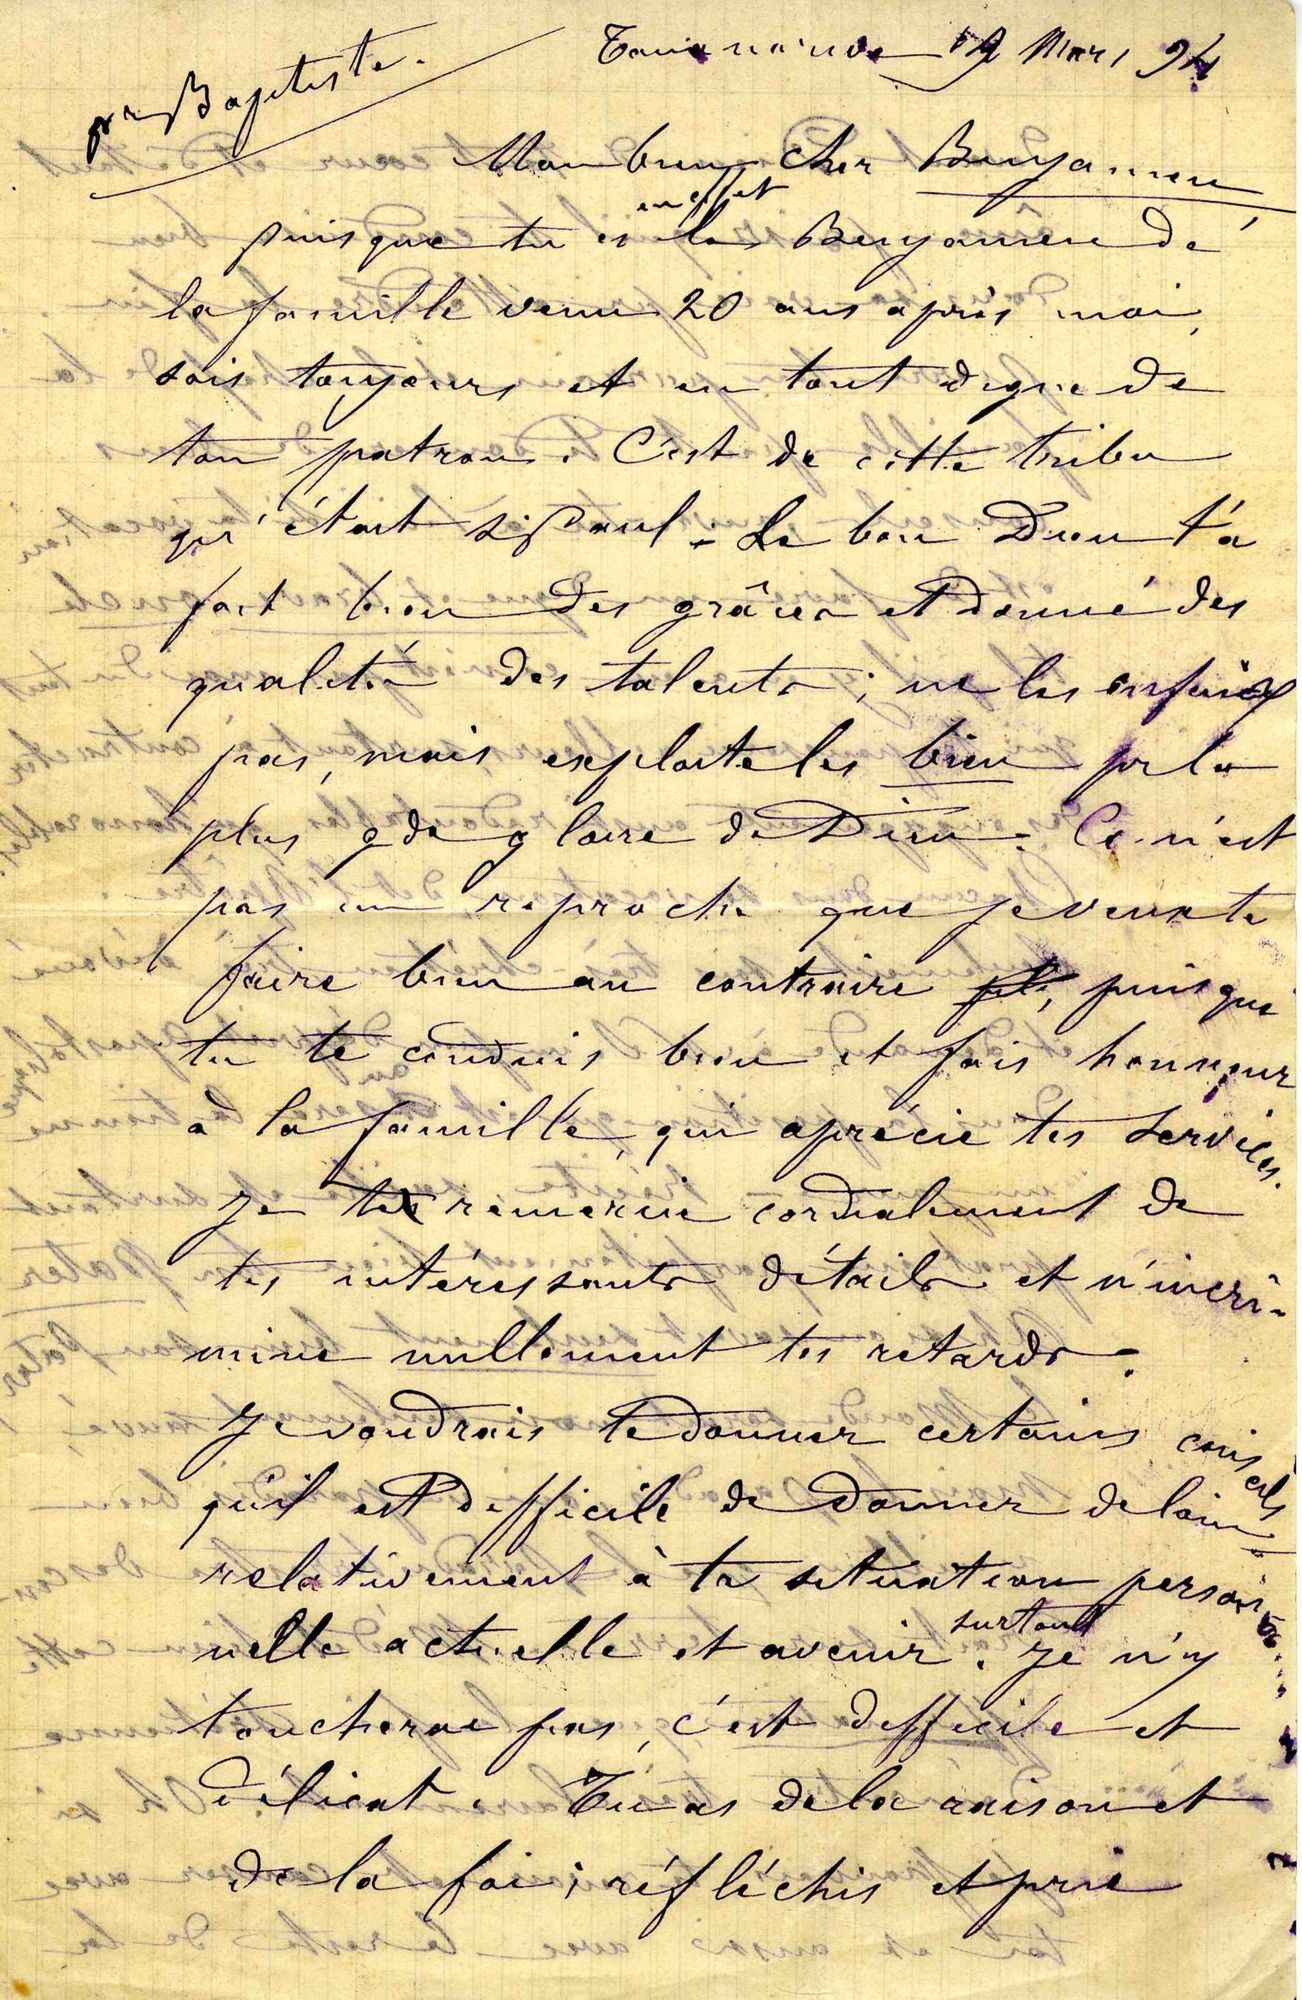 pr Baptiste.
Tananarive 19 Mars 94
Mon bien cher Benjamin
en effet
puisque tu es le Benjamin de
la famille venu 20 ans après moi,
sois toujours et en tout digne de
ton patron. C'est de cette tribu
qu'était St Paul. Le bon Dieu t'a
fait bien des grâces et donné des
qualités des talents ; ne les enfouis
pas, mais exploite les bien pr la
plus gde gloire de Dieu. Ce n'est
pas un reproche que je veux te
faire bien au contraire, puisque
tu te conduis bien et fais honneur
à la famille, qui aprécie tes services.
Je te remercie cordialement de
tes intéressants détails et n'incri-
mine nullement tes retards.
Je voudrais te donner certains conseils
qu'il est difficile de donner de loin
relativement à ta situation person
nelle actuelle et avenir surtout. Je n'y
toucherai pas, c'est difficile et
délicat. Tu as de la raison et
de la foi ; réfléchis et prie